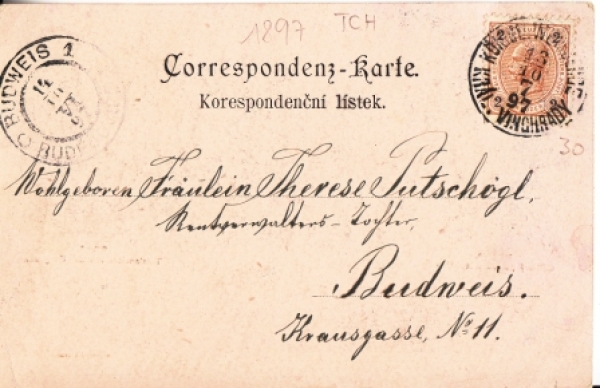 1897 TCH
BUDWEIS 1
14
97
BUD
Correspondenz-Karte.
Korespondenční lístek.
KÖNIGL.
VINOHRADY
13
10
7
97
30
Wohlgeboren Fräulein Therese Putschögl,
Rentverwalters-Tochter,
Budweis.
Krausgasse, No 11.